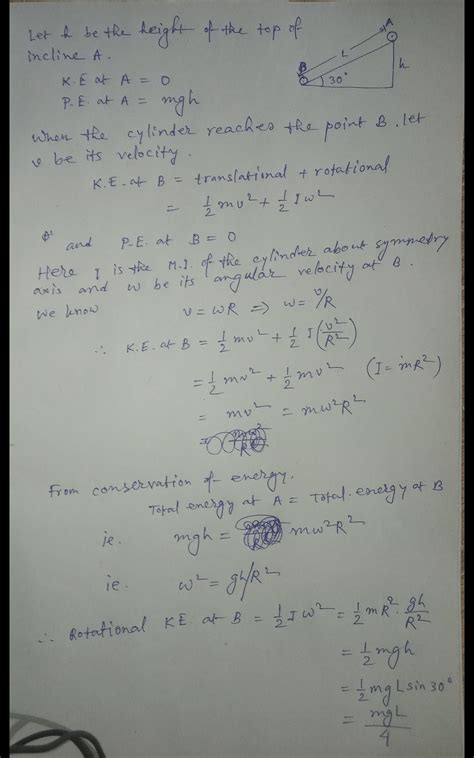 Let h be the height of the top of
incline A.
A
L
B
30°
h
K.E at A = 0
P.E. at A = mgh
When the cylinder reaches the point B, let
v be its velocity.
K.E. at B = translational + rotational
= 1/2 mv² + 1/2 Iω²
and P.E. at B = 0
Here I is the M.I. of the cylinder about symmetry
axis and ω be its angular velocity at B.
We know v = ωR ⇒ ω = v/R
∴ K.E. at B = 1/2 mv² + 1/2 I (v²/R²)
= 1/2 mv² + 1/2 mv² (I = mR²)
= mv² = mω²R²
From conservation of energy,
Total energy at A = Total energy at B
ie. mgh = mω²R²
ie. ω² = gh/R²
∴ Rotational KE at B = 1/2 Iω² = 1/2 mR² · gh/R²
= 1/2 mgh
= 1/2 mgL sin 30°
= mgL/4